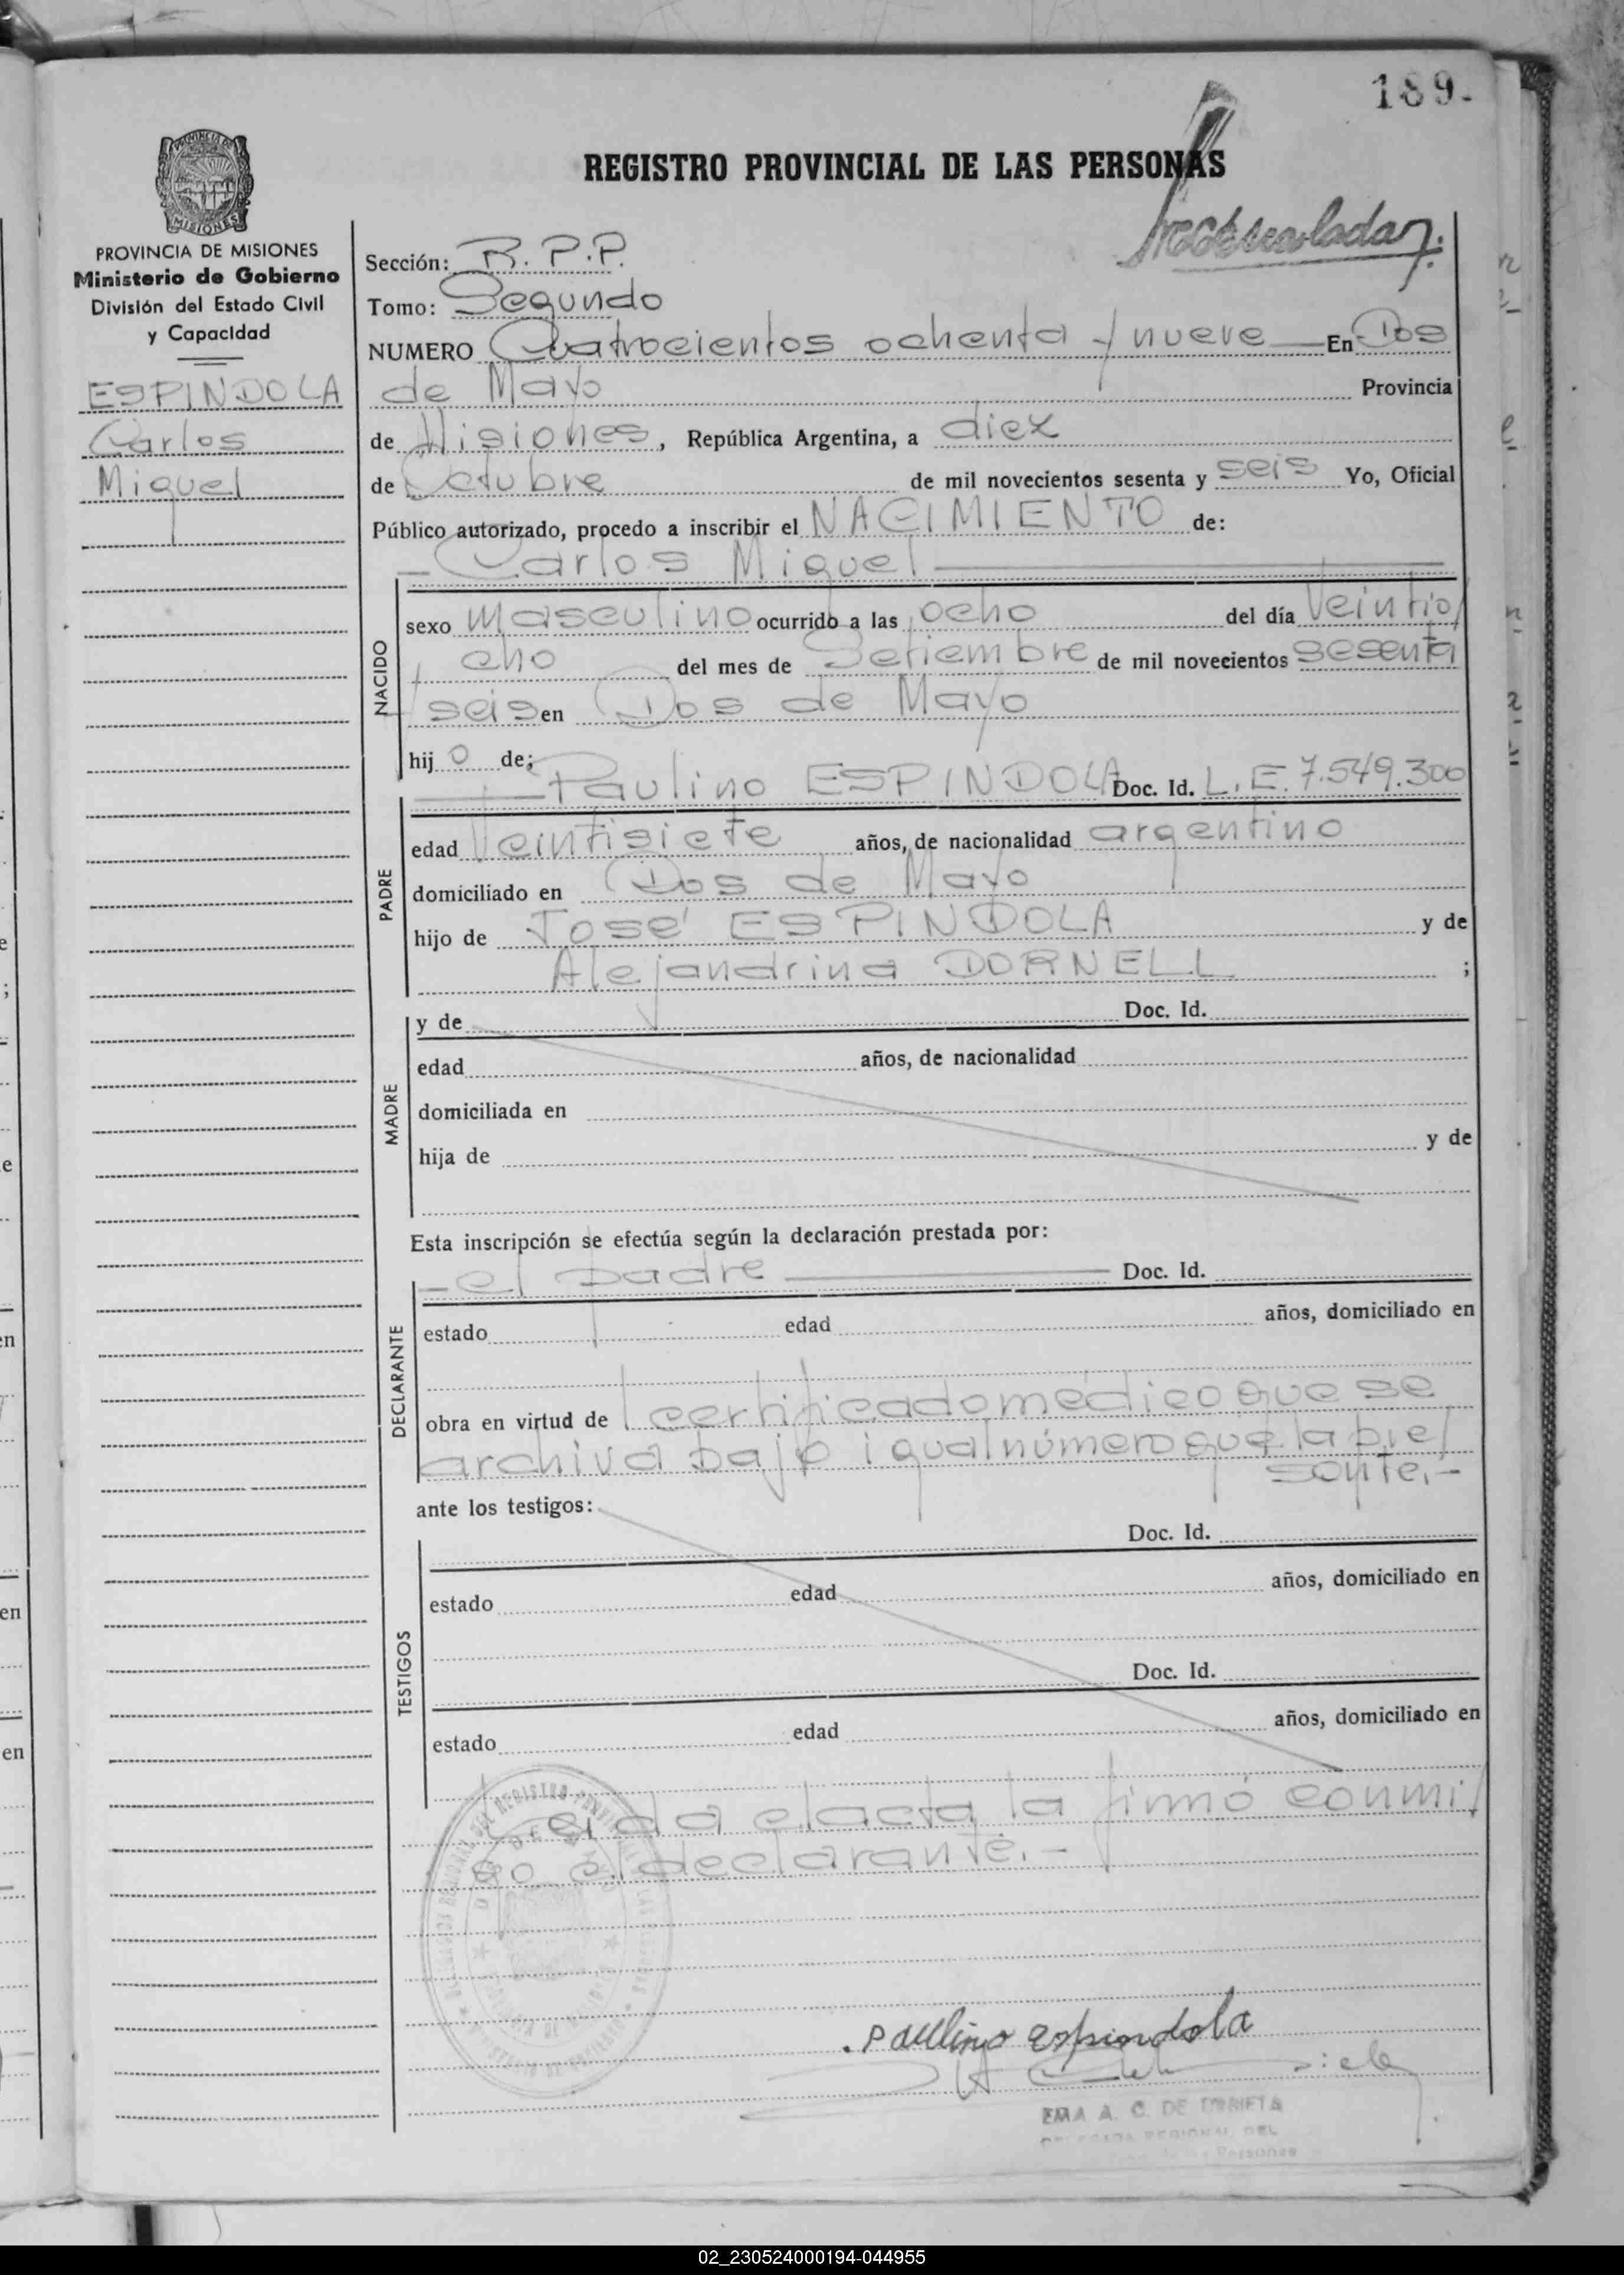 189.
REGISTRO PROVINCIAL DE LAS PERSONAS
PROVINCIA DE MISIONES
Ministerio de Gobierno
División del Estado Civil
y Capacidad
ESPINDOLA
Carlos
Miguel
Sección: R.P.P.
Tomo: Segundo
NUMERO Cuatrocientos ochenta y nueve En Dos
de Mayo Provincia
de Misiones, República Argentina, a diez
de Octubre de mil novecientos sesenta y seis Yo, Oficial
Público autorizado, procedo a inscribir el NACIMIENTO de:
Carlos Miguel
NACIDO
sexo masculino ocurrido a las ocho del día veintio/
cho del mes de Setiembre de mil novecientos sesenta
y seis en Dos de Mayo
hij o de;
Paulino ESPINDOLA Doc. Id. L.E. 7.549.300
PADRE
edad veintisiete años, de nacionalidad argentino
domiciliado en Dos de Mayo
hijo de José ESPINDOLA y de
Alejandrina DORNELL ;
MADRE
y de Doc. Id.
edad años, de nacionalidad
domiciliada en
hija de y de
Esta inscripción se efectúa según la declaración prestada por:
el padre Doc. Id.
DECLARANTE
estado edad años, domiciliado en
obra en virtud de certificado médico que se
archiva bajo igual número que la pre/
sente.-
ante los testigos:
Doc. Id.
TESTIGOS
estado edad años, domiciliado en
Doc. Id.
estado edad años, domiciliado en
Leida el acta la firmó conmi/
go el declarante.-
Paulino Espindola
EMA A. C. DE URRIETA
REGIONAL DEL
Personas
02_230524000194-044955